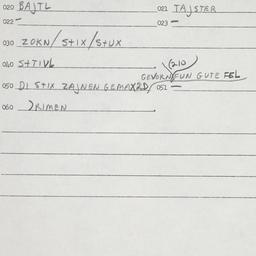 020 BAJTL 021 TAJSTER
022 — 023 —
030 ZOKN/STIX/STUX
040 STTIVL (210
GEVORN FUN GUTE FEL
050 DI STIX ZAJNEN GEMAXT 051 —
060 )RIMEN